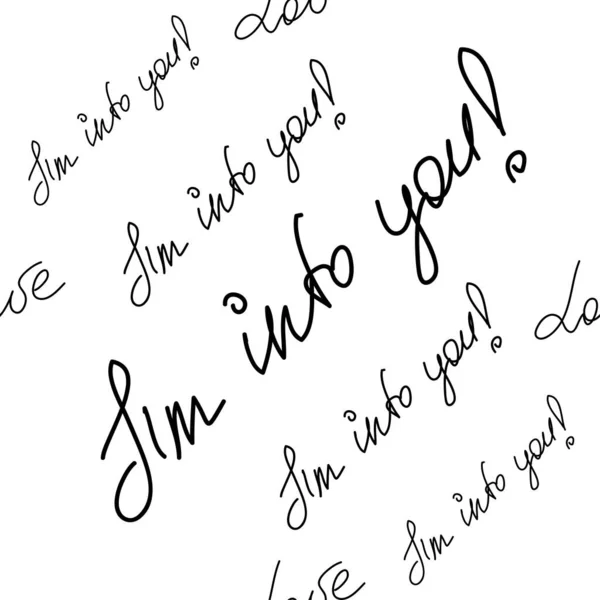 Lov
I'm into you!
I'm into you!
I'm into you!
ve
Lo
I'm into you!
I'm into you!
ove